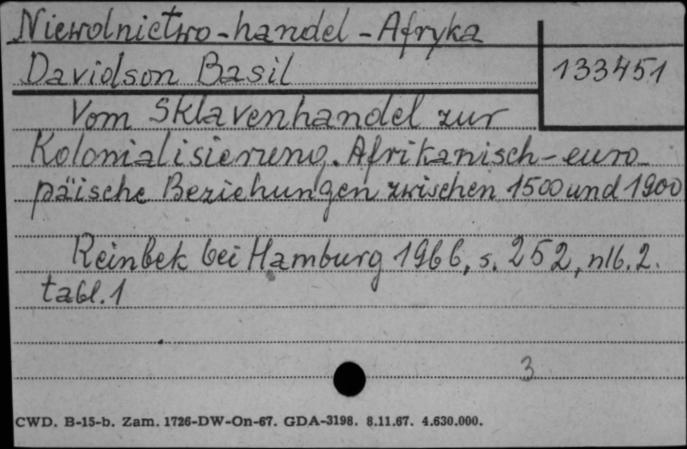 Niewolnictwo-handel-Afryka
Davidson Basil
133451
Vom Sklavenhandel zur
Kolonialisierung. Afrikanisch-euro-
päische Beziehungen zwischen 1500 und 1900
Reinbek bei Hamburg 1966, s. 252, nlb. 2.
tabl. 1
3
CWD. B-15-b. Zam. 1726-DW-On-67. GDA-3198. 8.11.67. 4.630.000.